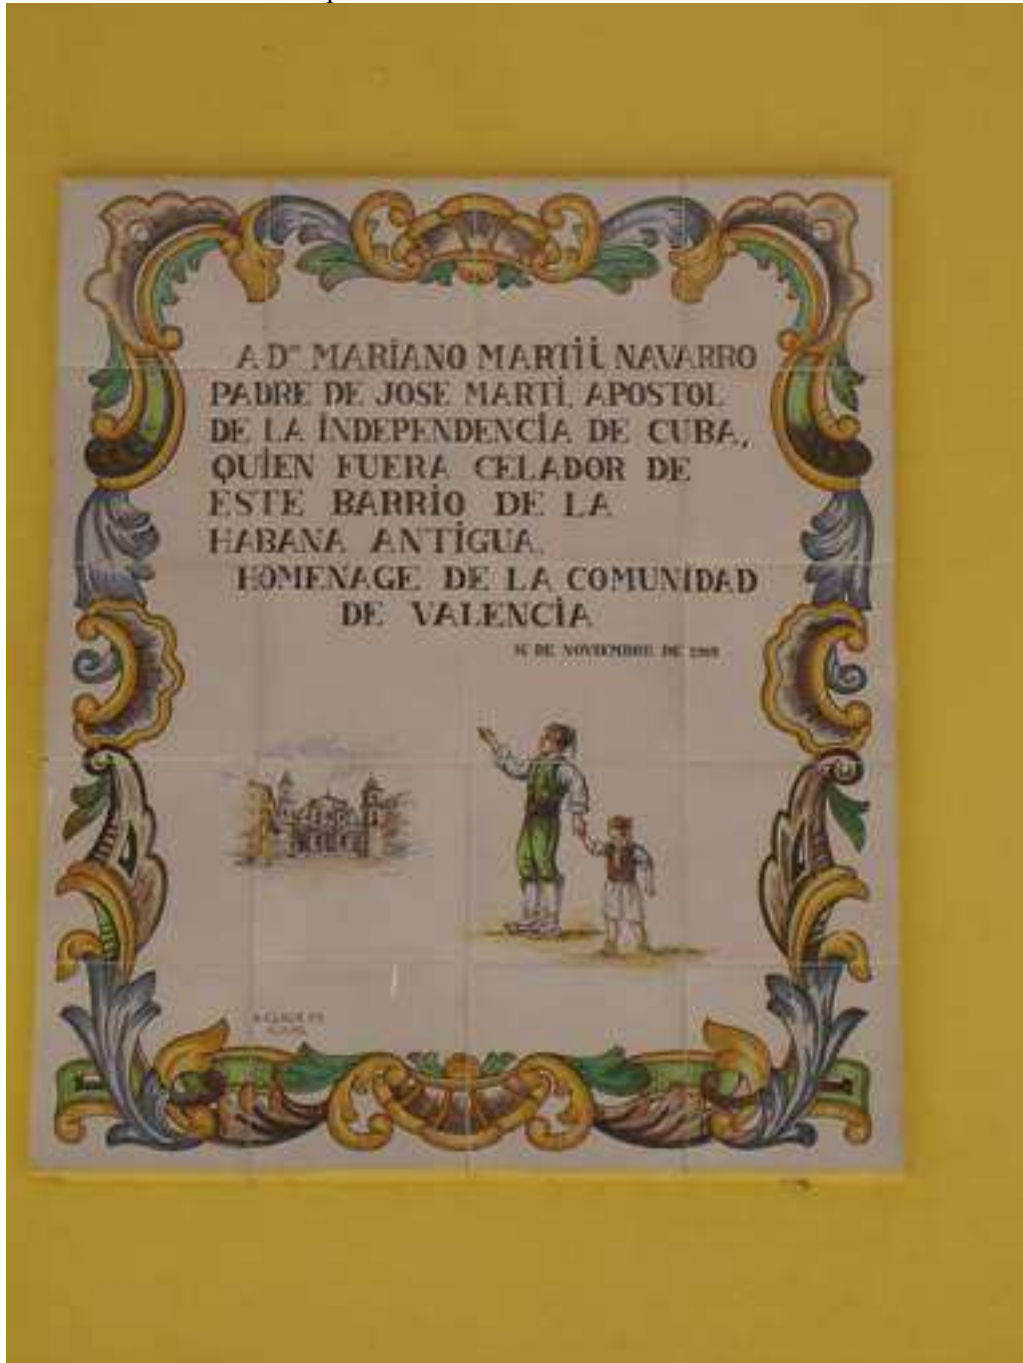 A Dⁿ MARIANO MARTÍ i NAVARRO
PADRE DE JOSE MARTÍ, APOSTOL
DE LA INDEPENDENCIA DE CUBA,
QUIEN FUERA CELADOR DE
ESTE BARRIO DE LA
HABANA ANTIGUA.
HOMENAGE DE LA COMUNIDAD
DE VALENCIA
DE NOVIEMBRE DE